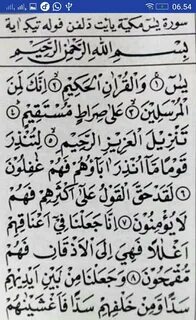 06.54
سورة يس مكية يائيت دلفن فوله تيك اية
بِسْمِ اللهِ الرَّحْمٰنِ الرَّحِيْمِ
يٰسۤ ۝١ وَالْقُرْاٰنِ الْحَكِيْمِ ۝٢ اِنَّكَ لَمِنَ
الْمُرْسَلِيْنَ ۝٣ عَلٰى صِرَاطٍ مُّسْتَقِيْمٍ ۝٤
تَنْزِيْلَ الْعَزِيْزِ الرَّحِيْمِ ۝٥ لِتُنْذِرَ
قَوْمًا مَّآ اُنْذِرَ اٰبَآؤُهُمْ فَهُمْ غٰفِلُوْنَ ۝٦
لَقَدْ حَقَّ الْقَوْلُ عَلٰٓى اَكْثَرِهِمْ فَهُمْ
لَا يُؤْمِنُوْنَ ۝٧ اِنَّا جَعَلْنَا فِيْٓ اَعْنَاقِهِمْ
اَغْلٰلًا فَهِيَ اِلَى الْاَذْقَانِ فَهُمْ
مُّقْمَحُوْنَ ۝٨ وَجَعَلْنَا مِنْۢ بَيْنِ اَيْدِيْهِمْ
سَدًّا وَّمِنْ خَلْفِهِمْ سَدًّا فَاَغْشَيْنٰهُمْ